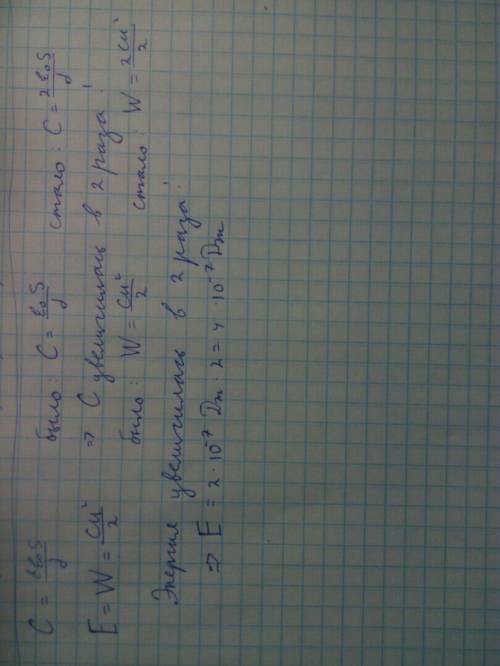 C = εε₀S/d было: C = ε₀S/d стало: C = 2ε₀S/d
E = W = CU²/2 ⇒ C увеличилась в 2 раза!
было: W = CU²/2 стало: W = 2CU²/2
Энергия увеличилась в 2 раза.
⇒ E = 2·10⁻⁷ Дж · 2 = 4·10⁻⁷ Дж